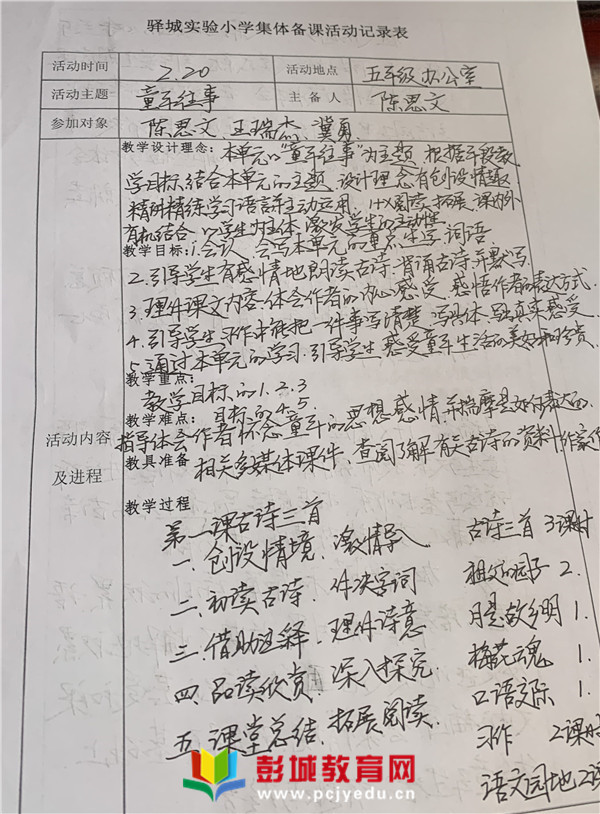 驿城实验小学集体备课活动记录表
活动时间 2.20 活动地点 五年级办公室
活动主题 童年往事 主备人 陈思文
参加对象 陈思文、王瑞杰、冀勇
教学设计理念：本单元以"童年往事"为主题，根据年段教
学目标，结合本单元的主题，设计理念有创设情趣
精讲精练学习语言并主动运用，以阅读、拓展、课内外
有机结合，以学生为主体，激发学生的主动性
教学目标：1.会认、会写本单元的重点生字、词语
2.引导学生有感情地朗读古诗，背诵古诗，并默写.
3.理解课文内容，体会作者的内心感受，感悟作者的表达方式.
4.引导学生习作中能把一件事写清楚，写具体，写真实感受.
5.通过本单元的学习，引导学生感受童年生活的美好和珍贵.
教学重点：
教学目标的1.2.3
教学难点：目标的4.5
活动内容及进程
指导体会作者怀念童年的思想感情，并揣摩是如何表达的.
教具准备 相关多媒体课件，查阅了解有关古诗的资料，作家作
教学过程
第一课古诗三首 古诗三首 3课时
一.创设情境，激情导入 祖父的园子 2.
二.初读古诗，解决字词 月是故乡明 1.
三.借助注释，理解诗意 梅花魂 1.
四.品读欣赏，深入探究. 口语交际 1.
五.课堂总结，拓展阅读. 习作 2课时
语文园地2课
彭城教育网
www.pcjyedu.cn